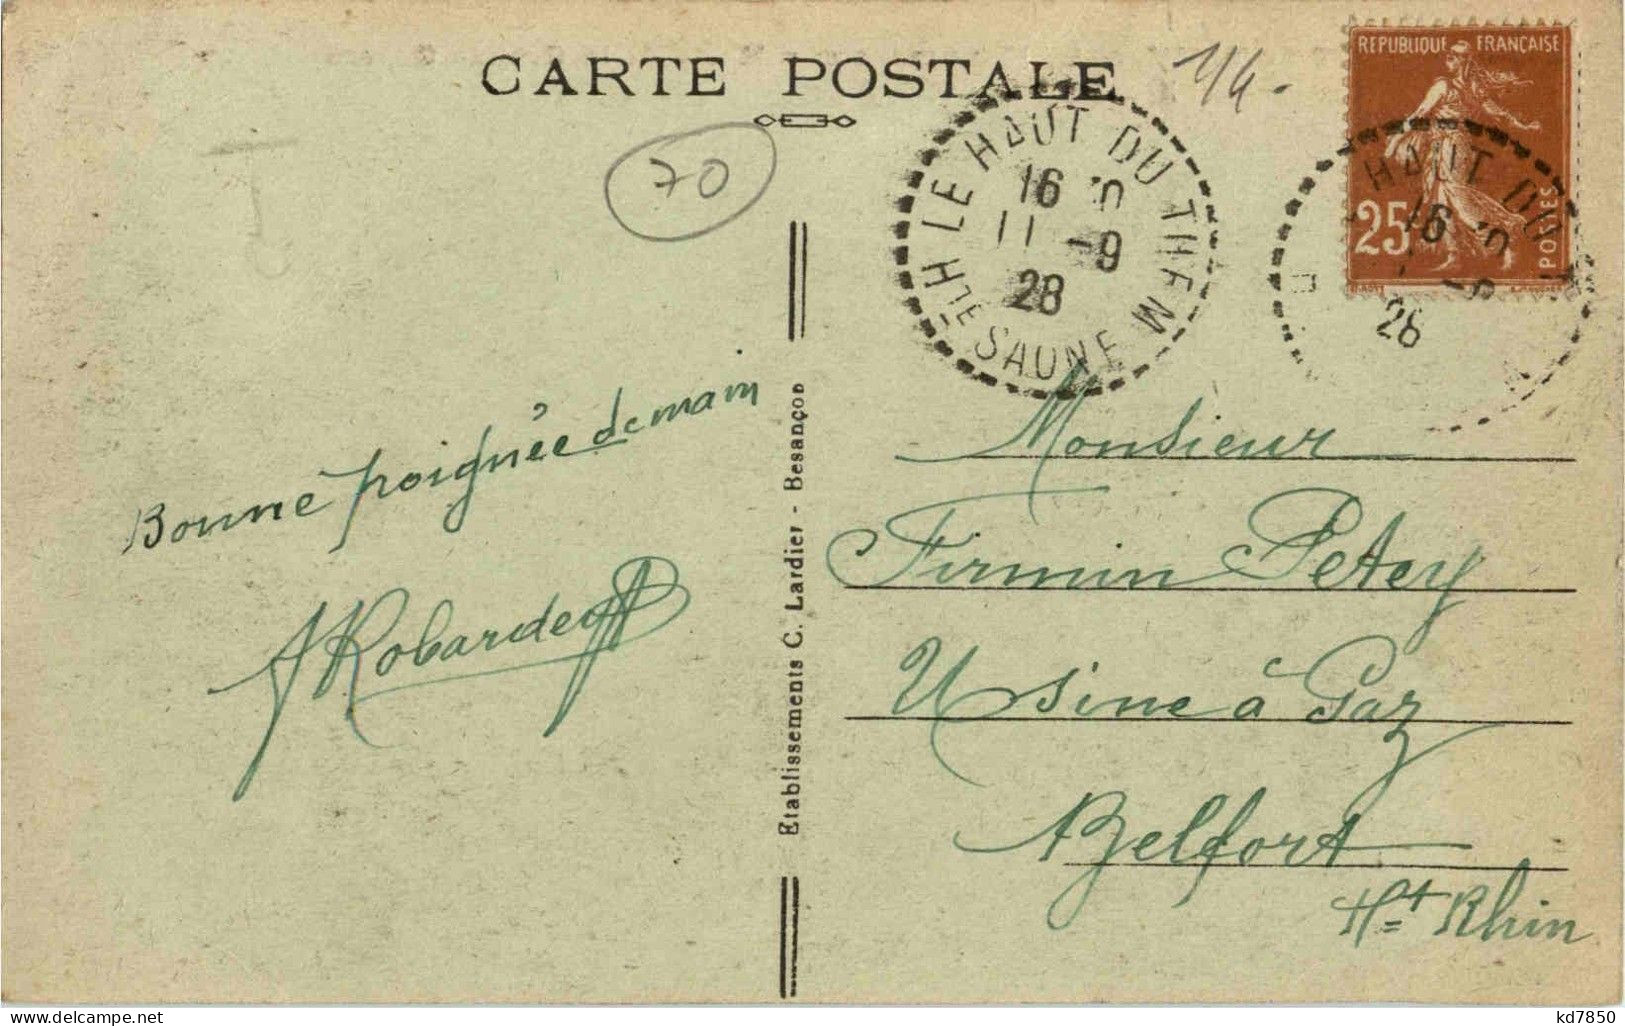 CARTE POSTALE
1/4.
70
REPUBLIQUE FRANÇAISE
25
POSTES
LE HAUT DU THEM
16
11 -9
28
HTE SAONE
HAUT DU
16
28
Bonne poignée de main
Robardey
Etablissements C. Lardier - Besançon
Monsieur
Firmin Petey
Usine à Gaz
Belfort
Ht Rhin
kd7850